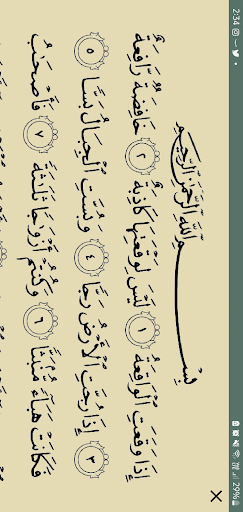 2:34 29%
بِسْمِ ٱللَّهِ ٱلرَّحْمَٰنِ ٱلرَّحِيمِ
إِذَا وَقَعَتِ ٱلْوَاقِعَةُ ١ لَيْسَ لِوَقْعَتِهَا كَاذِبَةٌ ٢ خَافِضَةٌ رَّافِعَةٌ
٣ إِذَا رُجَّتِ ٱلْأَرْضُ رَجًّا ٤ وَبُسَّتِ ٱلْجِبَالُ بَسًّا ٥
فَكَانَتْ هَبَآءً مُّنۢبَثًّا ٦ وَكُنتُمْ أَزْوَٰجًا ثَلَٰثَةً ٧ فَأَصْحَٰبُ